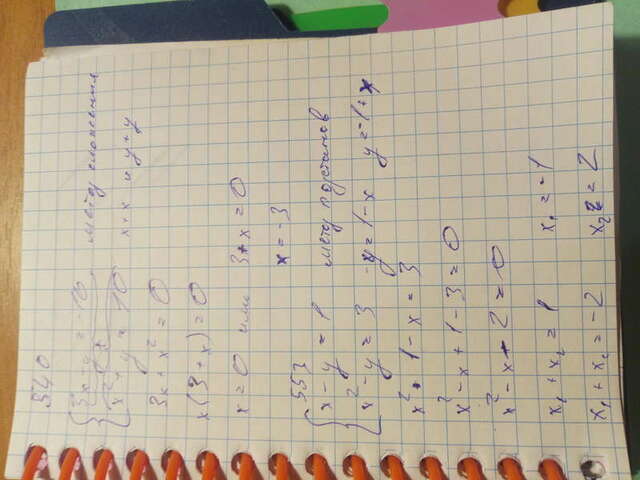 540
{3x - y = -10 метод сложения
{x² + y = 10 x + x и y + y
3x + x² = 0
x(3 + x) = 0
x = 0 или 3 + x = 0
x = -3
553
{x - y = 1 метод подстанов
{x² - y = 3 -y = 1 - x y = -1 + x
x² + 1 - x = 3
x² - x + 1 - 3 = 0
x² - x - 2 = 0
x₁ + x₂ = 1 x₁ = -1
x₁ + x₂ = -2 x₂ = 2